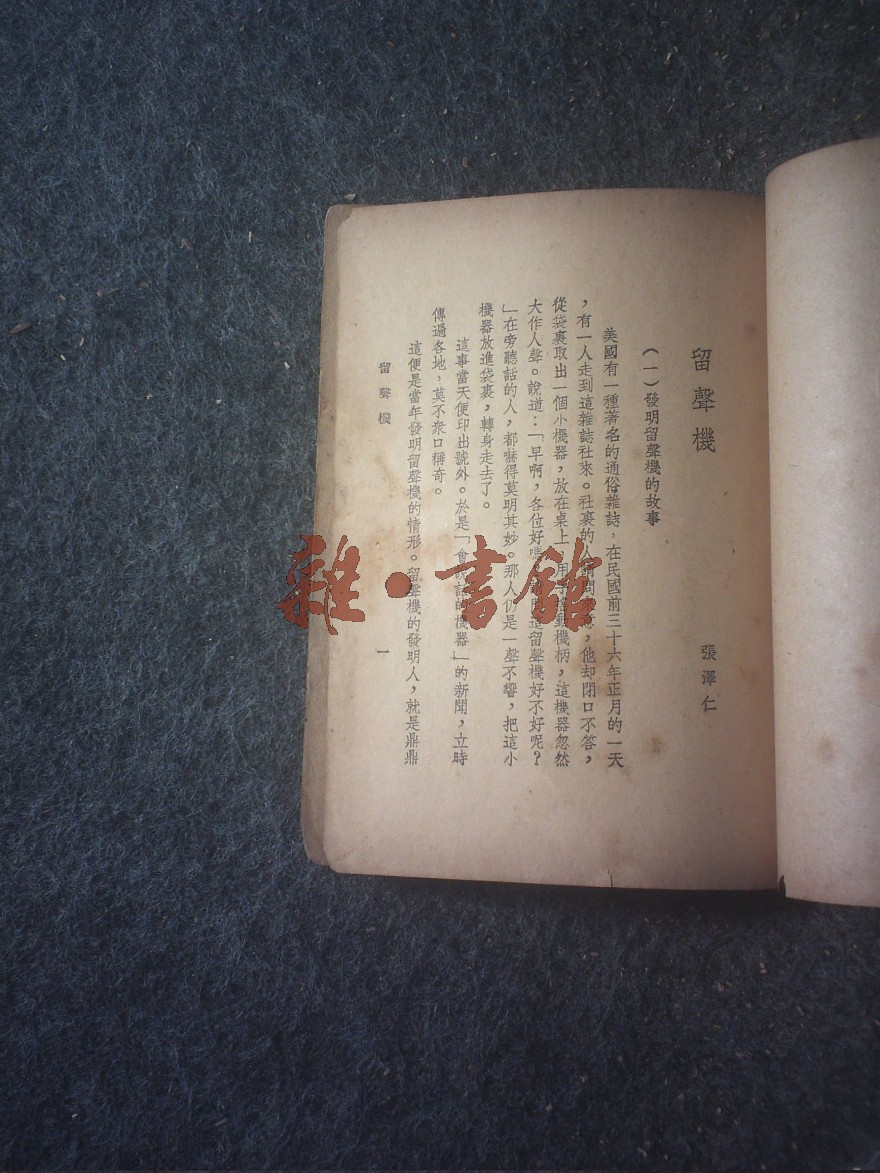 留聲機
張澤仁
（一）發明留聲機的故事
美國有一種著名的通俗雜誌，在民國前三十六年正月的一天
，有一人走到這雜誌社來。社裏的人，他却閉口不答，
從袋裏取出一個小機器，放在桌上，機柄，這機器忽然
大作人聲。說道：「早啊，各位好嗎這留聲機好不好呢？
」在旁聽話的人，都嚇得莫明其妙。那人仍是一聲不響，把這小
機器放進袋裏，轉身走去了。
這事當天便印出號外。於是「會說話的機器」的新聞，立時
傳遍各地，莫不衆口稱奇。
這便是當年發明留聲機的情形。留聲機的發明人，就是鼎鼎
留聲機
一
雜·書館